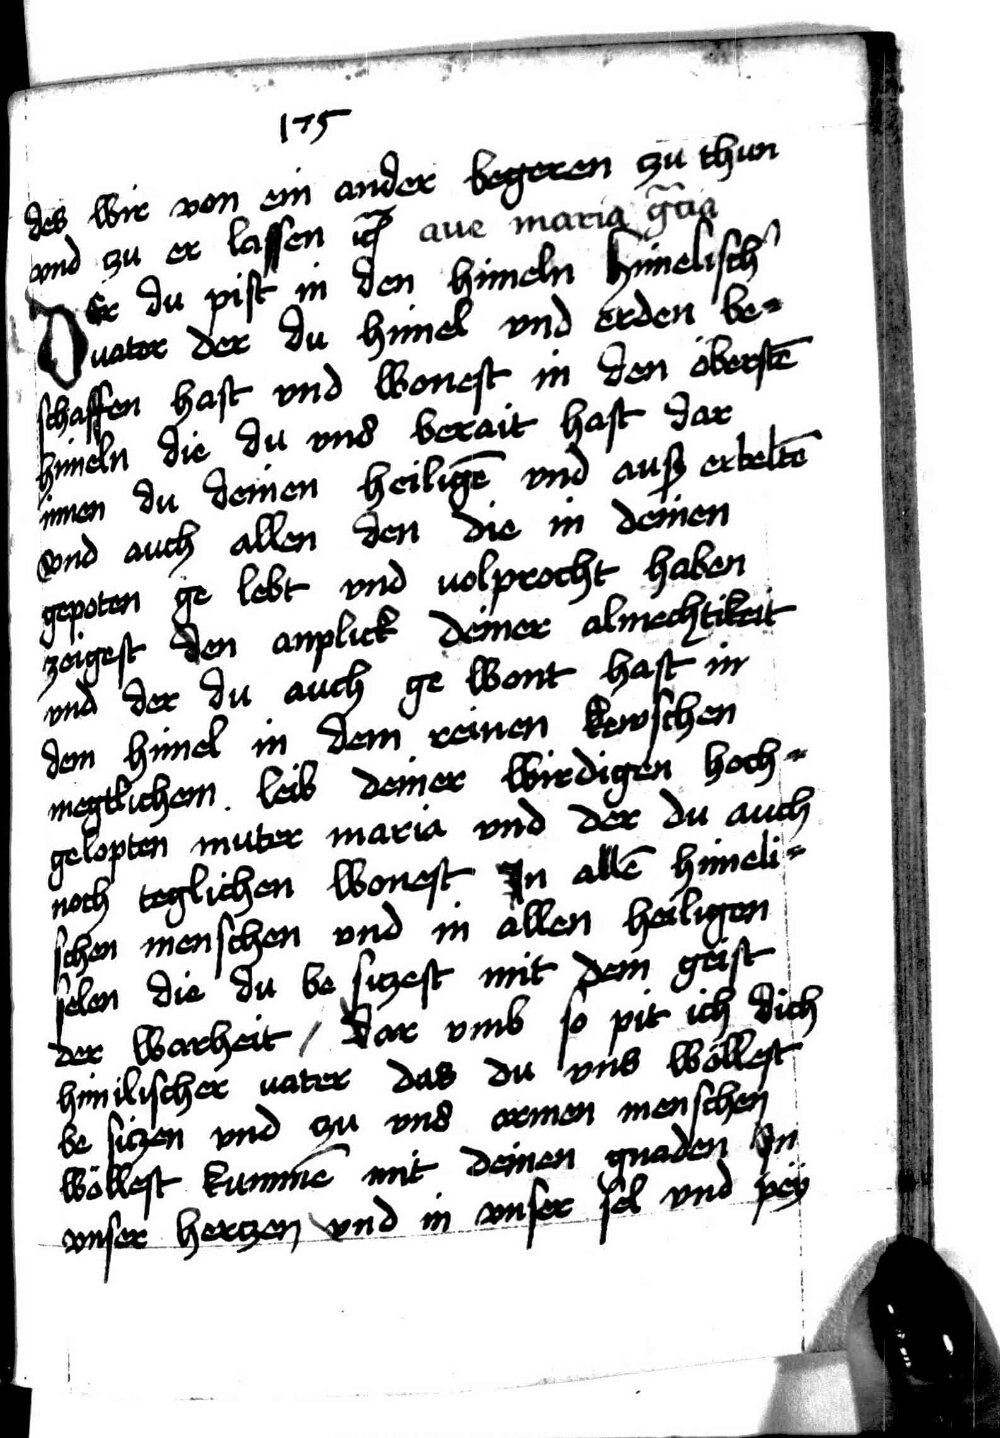 175
des wir von ein ander begeren zu thun
vnd zu er lassen ic̃ aue maria gr̃cia
Der du pist in den himeln himelisch̕
uater der du himel vnd erden be=
schaffen hast vnd wonest in den öberstē
himeln die du vns berait hast dar
innen du deinen heiligē vnd auß erbeltē
vnd auch allen den die in deinen
gepoten ge lebt vnd uolprocht haben
zeigest den anplick deiner almechtikeit
vnd der du auch ge wont hast in
dem himel in dem reinen kewschen
megtlichem leib deiner wirdigen hoch=
gelopten muter maria vnd der du auch
noch teglichen wonest In allē himeli=
schen menschen vnd in allen heiligen
selen die du be sitzest mit dem geist
der warheit / Dar vmb so pit ich dich
himilischer uater das du vns wöllest
be sitzen vnd zu vns armen menschen
wöllest kummē mit deinen gnaden In
vnser hertzen vnd in vnser sel vnd pey